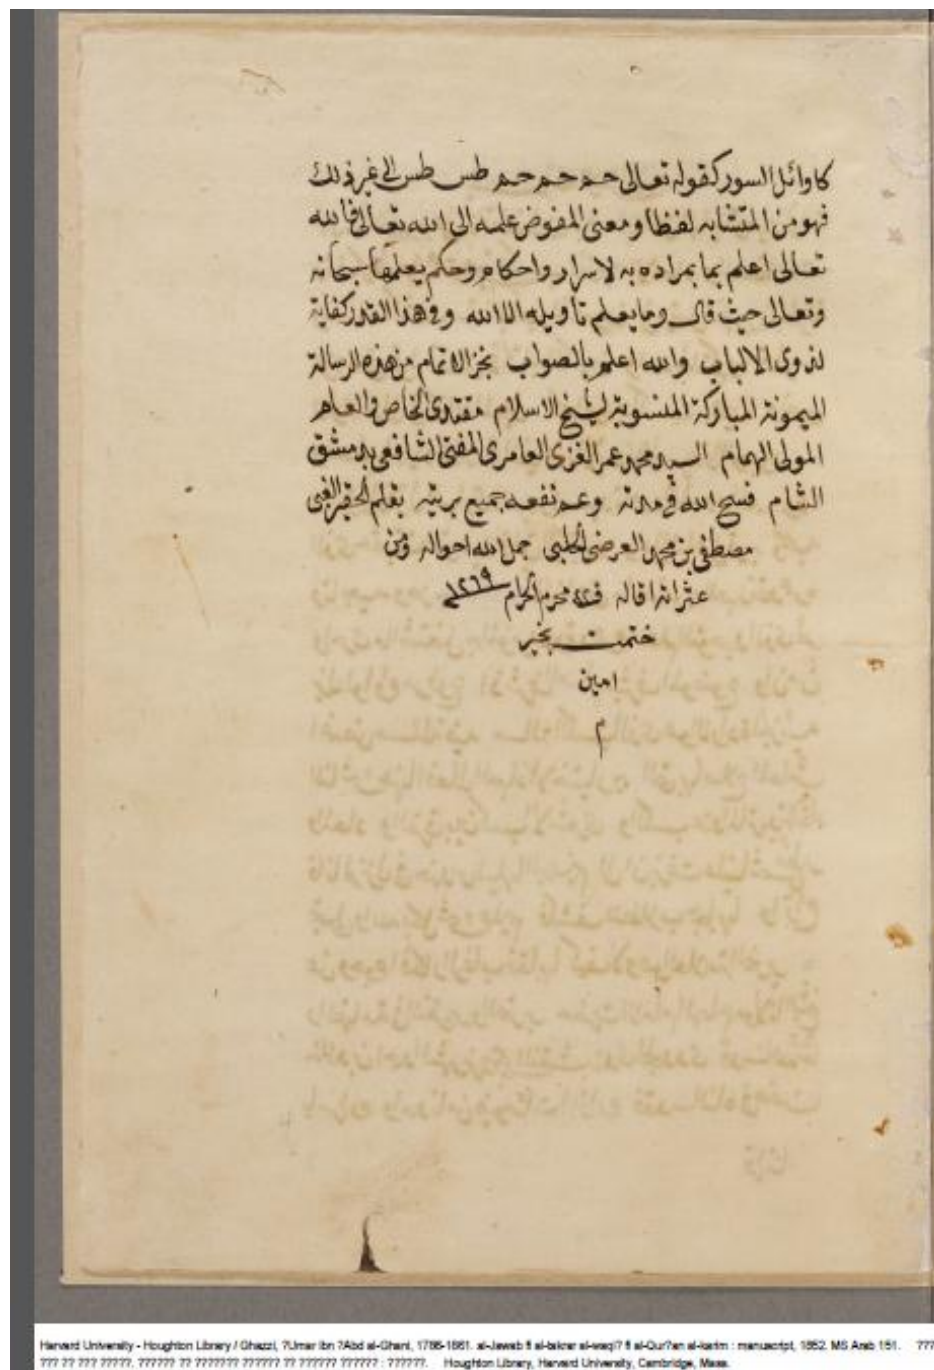 كاوائل السور كقوله تعالى حم حم حم طس طس الى غير ذلك
فهو من المتشابه لفظا ومعنى المفوض علمه الى الله تعالى فالله
تعالى اعلم بما بمراده به لاسرار واحكام وحكم يعلمها سبحانه
وتعالى حيث قال وما يعلم تاويله الا الله وفي هذا القدر كفاية
لذوى الالباب والله اعلم بالصواب نجز الاتمام من هذه الرسالة
الميمونة المباركة المنسوبة لشيخ الاسلام مقتدى الخاص والعام
المولى الهمام السيد محمد عمر الغزى العامرى المفتى الشافعى بدمشق
الشام فسح الله فى مدته وعم نفعه جميع بريته بقلم الحقير الغبى
مصطفى بن محمد العرضى الحلبى جمل الله احواله ومن
عثراته اقاله فى محرم الحرام ١٢٦٩
ختمت بخير
امين
م
Harvard University - Houghton Library / Ghazzi, ?Umar ibn ?Abd al-Ghani, 1786-1861. al-Jawab fi al-takrar al-waqi? fi al-Qur?an al-karim : manuscript, 1852. MS Arab 151. ???
??? ?? ??? ?????. ?????? ?? ??????? ?????? ?? ?????? ?????? : ??????. Houghton Library, Harvard University, Cambridge, Mass.